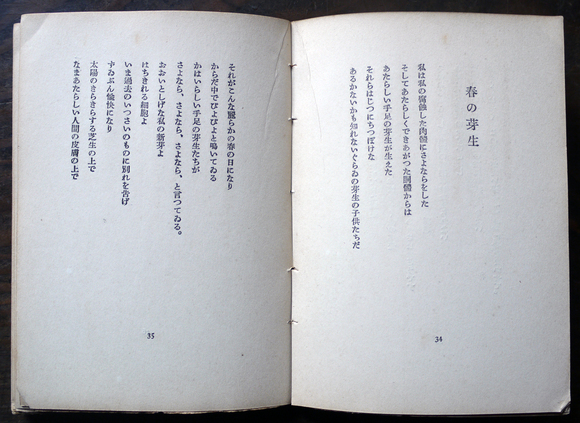 春の芽生
私は私の腐蝕した肉體にさよならをした
そしてあたらしくできあがつた胴體からは
あたらしい手足の芽生が生えた
それらはじつにちつぽけな
あるかないかも知れないぐらゐの芽生の子供たちだ
34
それがこんな麗らかの春の日になり
からだ中でぴよぴよと鳴いてゐる
かはいらしい手足の芽生たちが
さよなら、さよなら、さよなら、と言つてゐる。
おおいとしげな私の新芽よ
はちきれる細胞よ
いま過去のいつさいのものに別れを告げ
ずゐぶん愉快になり
太陽のきらきらする芝生の上で
なまあたらしい人間の皮膚の上で
35